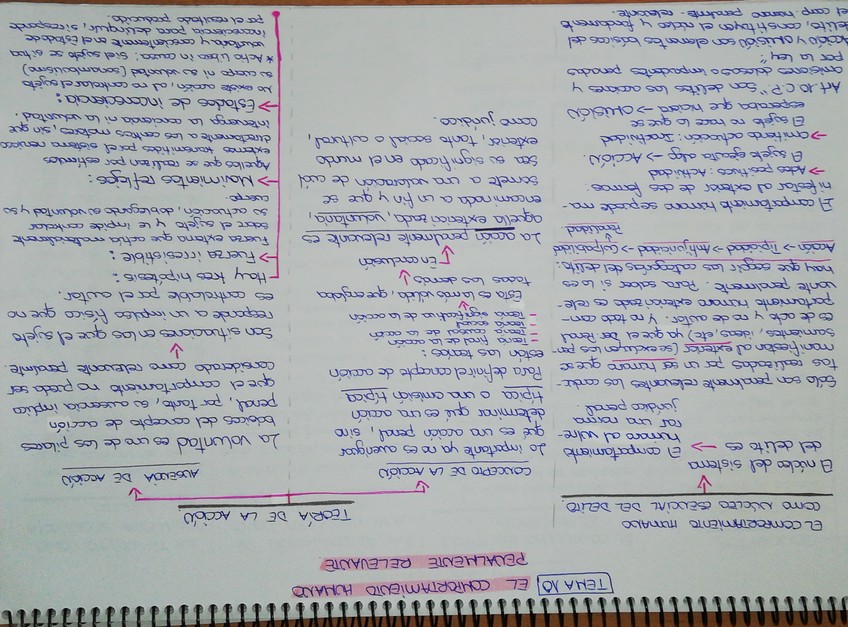 TEMA 10 EL COMPORTAMIENTO HUMANO
PENALMENTE RELEVANTE
EL COMPORTAMIENTO HUMANO
COMO NÚCLEO ESENCIAL DEL DELITO.
El núcleo del sistema
del delito es → El comportamiento
humano al vulne-
rar una norma
jurídico penal
Solo son penalmente relevantes las conduc-
tas realizadas por un ser humano que se
manifiestan al exterior (se excluyen los pen-
samientos, ideas, etc) ya que el Der. Penal
es de acto y no de autor. Y no todo com-
portamiento humano exteriorizado es rele-
vante penalmente. Para saber si lo es
hay que seguir las categorías del delito:
Acción → Tipicidad → Antijuricidad → Culpabilidad
Penalidad
El comportamiento humano se puede ma-
nifestar al exterior de dos formas:
→ Actos positivos: Actividad
El sujeto ejecuta algo → ACCIÓN.
→ omitiendo actuación: Inactividad
El sujeto no hace lo que se
esperaba que hiciera → OMISIÓN
Art. 10 C.P "Son delitos las acciones y
omisiones dolosas o imprudentes penadas
por la ley"
ACCIÓN Y OMISIÓN son elementos básicos del
delito, constituyen el núcleo y fundamento
del comp. humano penalmente relevante.
TEORÍA DE LA ACCIÓN
CONCEPTO DE LA ACCIÓN
Lo importante no ya averiguar
qué es una acción penal, sino
determinar que es una acción
típica o una omisión típica
Para definir el concepto de acción
están las teorías:
– Teoría final de la acción
– Teoría causal de la acción
– Teoría social
– Teoría significativa de la acción
Esta es la más válida que engloba
todas las demás
En conclusión
La acción penalmente relevante es
aquella exteriorizada, voluntaria,
encaminada a un fin y que se
somete a una valoración de cuál
sea su significado en el mundo
exterior, tanto social o cultural,
como jurídico.
AUSENCIA DE ACCIÓN
La voluntad es uno de los pilares
básicos del concepto de acción
penal, por tanto, su ausencia implica
que el comportamiento no pueda ser
considerado como relevante penalmente
Son situaciones en las que el sujeto
responde a un impulso físico que no
es controlable por el autor.
Hay tres hipótesis:
→ Fuerza irresistible:
Fuerza externa que actúa materialmente
sobre el sujeto y le impide controlar
su actuación, doblegando su voluntad y su
cuerpo.
→ Movimientos reflejos:
Aquellos que se realizan por estímulos
externos transmitidos por el sistema nervioso
directamente a los centros motores, sin que
intervenga la conciencia ni la voluntad.
→ Estados de inconsciencia:
No existe acción, al no controlar el sujeto
su cuerpo ni su voluntad (sonambulismo)
* Actio libera in causa: si el sujeto se sitúa
voluntaria y conscientemente en el Estado de
inconsciencia para delinquir, si responde
por el resultado producido.